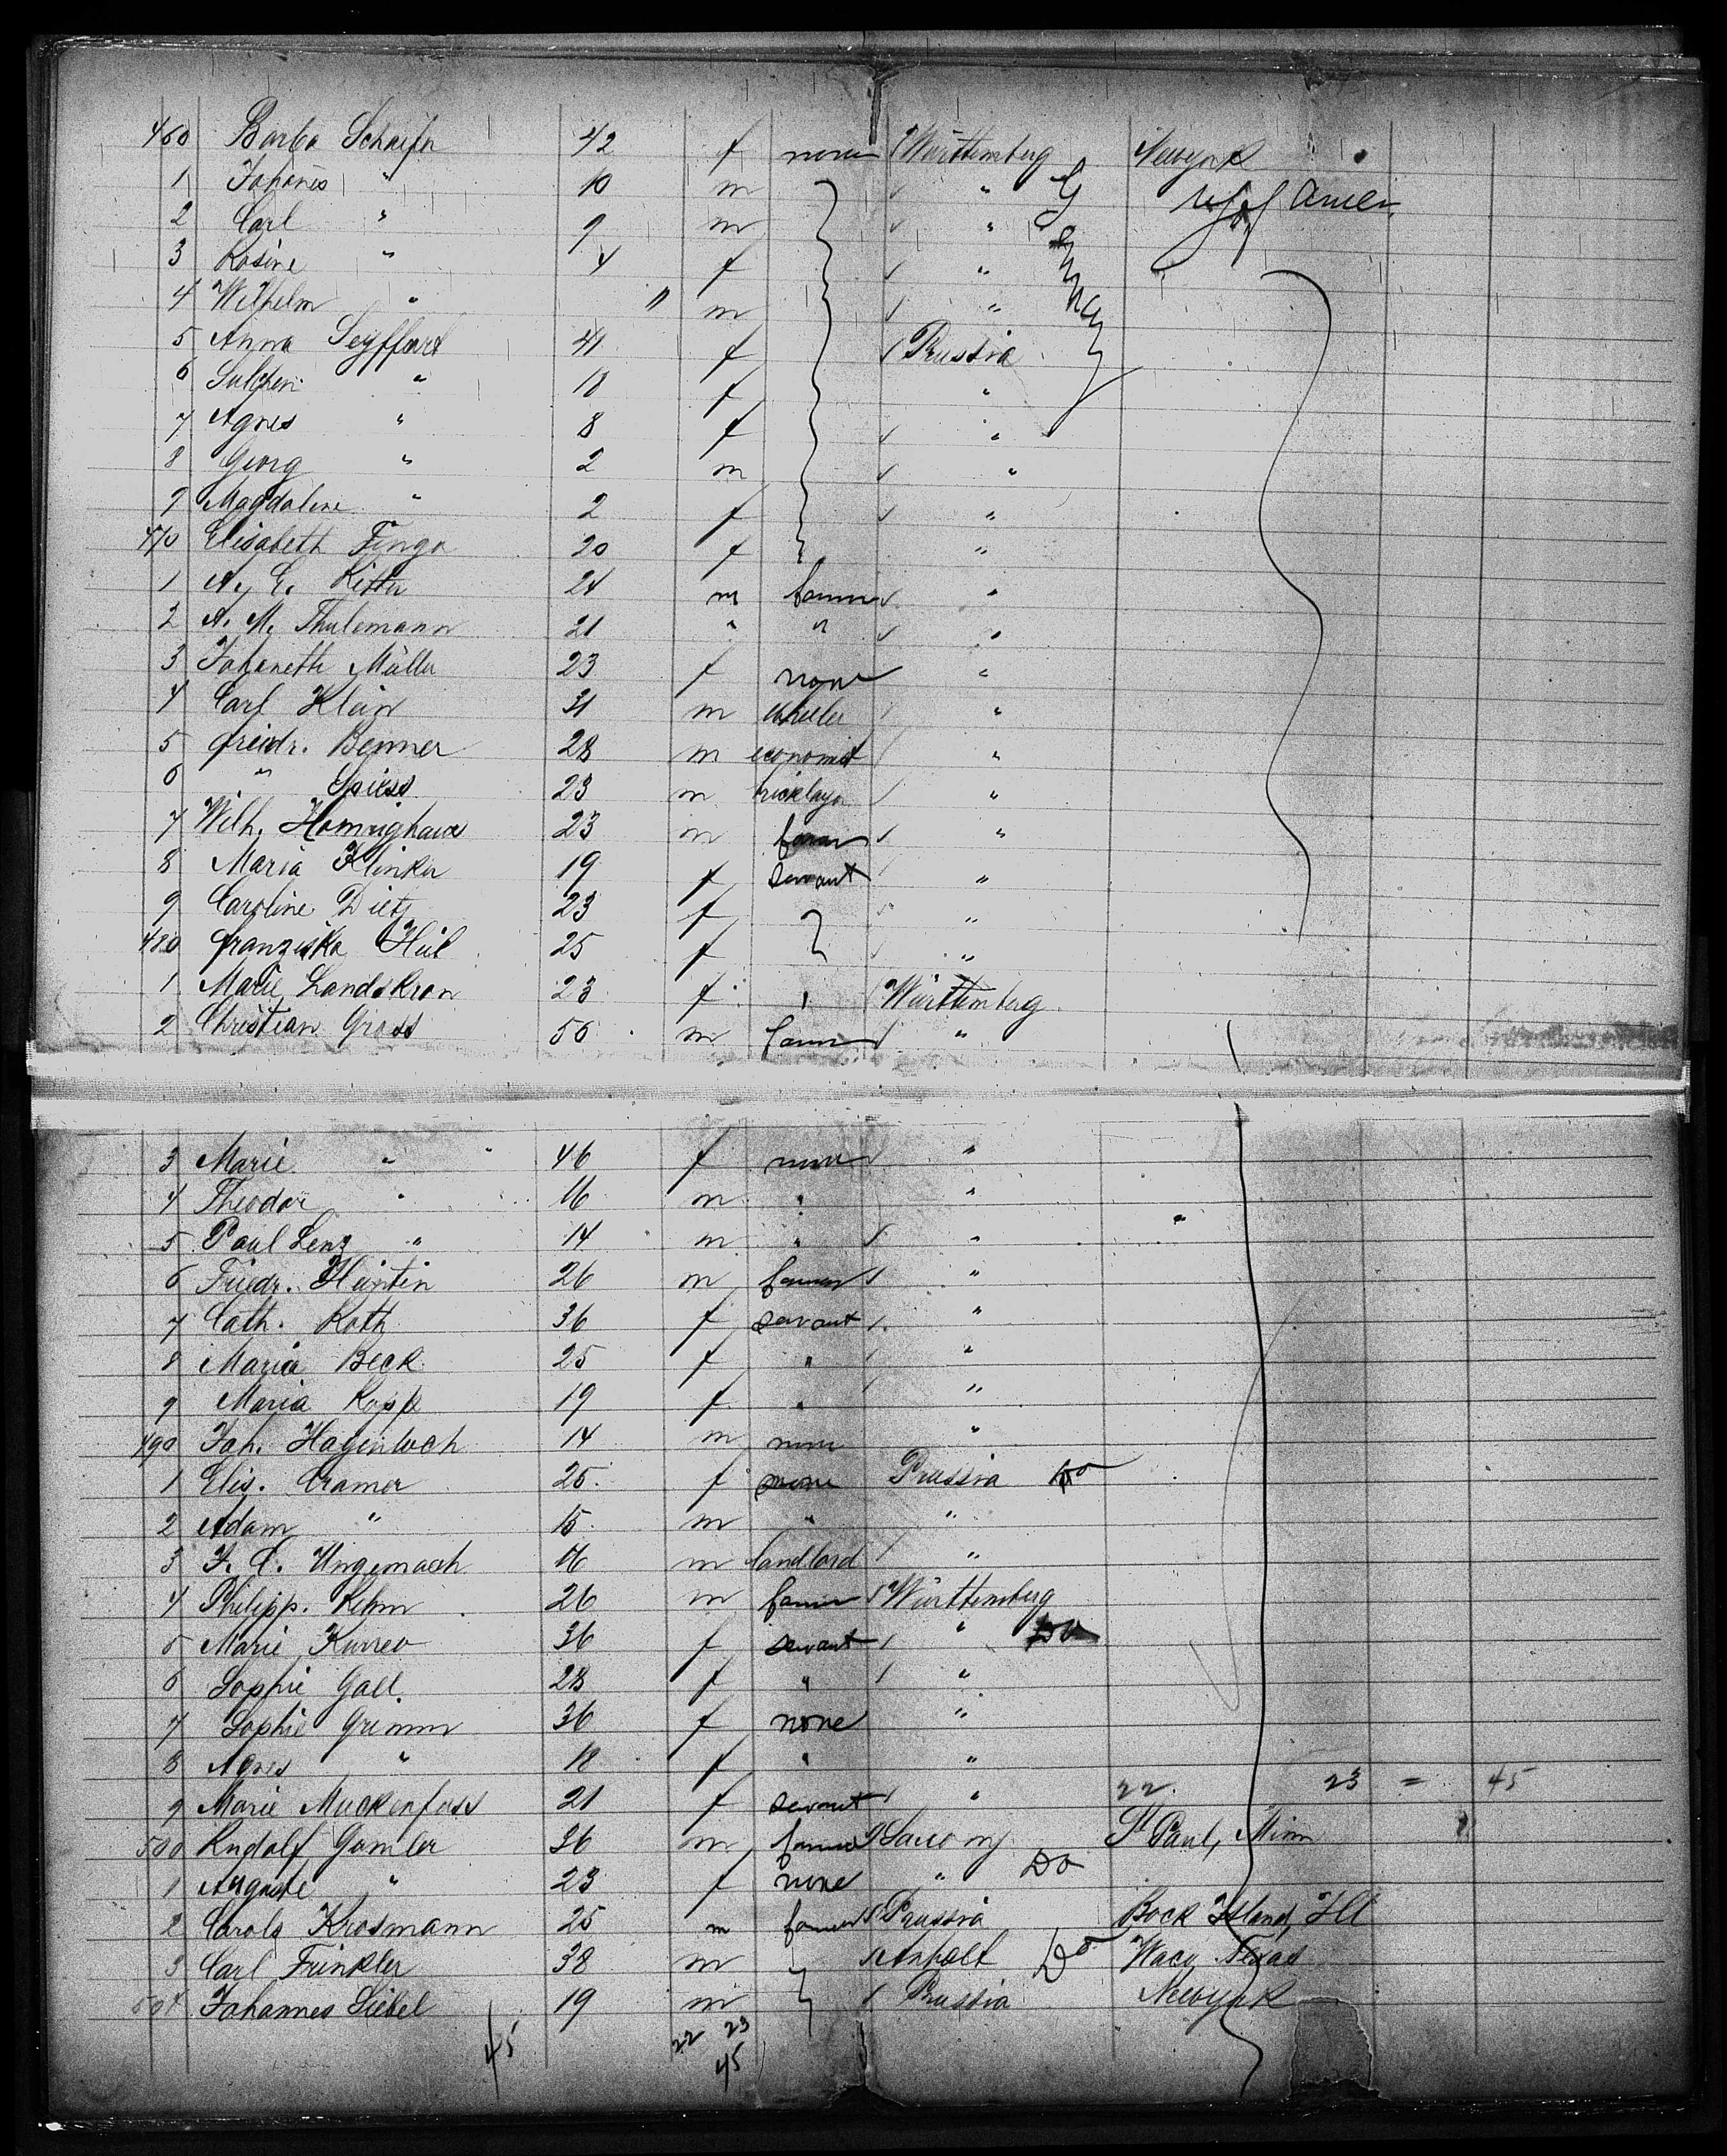 460 Barba Schaefer 42 f none Württemberg Newyork
1 Johanes " 10 m " U S of Amer.
2 Carl " 9 m "
3 Rosine " 4 f "
4 Wilhelm " " m "
5 Anna Seyffart 41 f Prussia
6 Julchen " 10 f "
7 Agnes " 8 f "
8 Georg " 2 m "
9 Magdalene " 2 f "
470 Elisabeth Finga 20 f "
1 A. C. Ritter 24 m farmer "
2 A. M. Thulemann 21 " " "
3 Johaneth Müller 23 f none "
4 Carl Klein 31 m wheeler "
5 Freidr. Benner 28 m economist "
6 " Spiess 23 m bricklayer "
7 Wilh. Homrighaus 23 m farmer "
8 Maria Klinker 19 f servant "
9 Caroline Dietz 23 f "
480 Franziska Hül 25 f "
1 Marie Landskron 23 f " Württemberg
2 Christian Gross 56 m farmer "
3 Marie " 46 f none "
4 Theodor " 16 m " "
5 Paul Lenz " 14 m " "
6 Friedr. Haintin 26 m farmer "
7 Cath. Roth 36 f servant "
8 Maria Beck 25 f " "
9 Maria Kopp 19 f " "
490 Joh. Hagenloch 14 m none "
1 Elis. Cramer 25 f none Prussia Do
2 Adam " 15 m " "
3 F. C. Ungemach 46 m landlord "
4 Philipp. Kehm 26 m farmer Württemberg
5 Marie Kurreo 36 f servant " Do
6 Sophie Gall. 28 f " "
7 Sophie Grimm 36 f none "
8 Agnes " 18 f " "
9 Marie Muckenfuss 21 f servant " 22. 23 = 45
500 Rudolf Gamler 36 m farmer Saxony St Paul, Minn
1 Auguste " 23 f none " Do
2 Carola Krosmann 25 m farmer Prussia Rock Island, Ill
3 Carl Trinkler 38 m Anhalt Do Waco Texas
504 Johannes Siebel 19 m Prussia Newyork
45 22 23
45